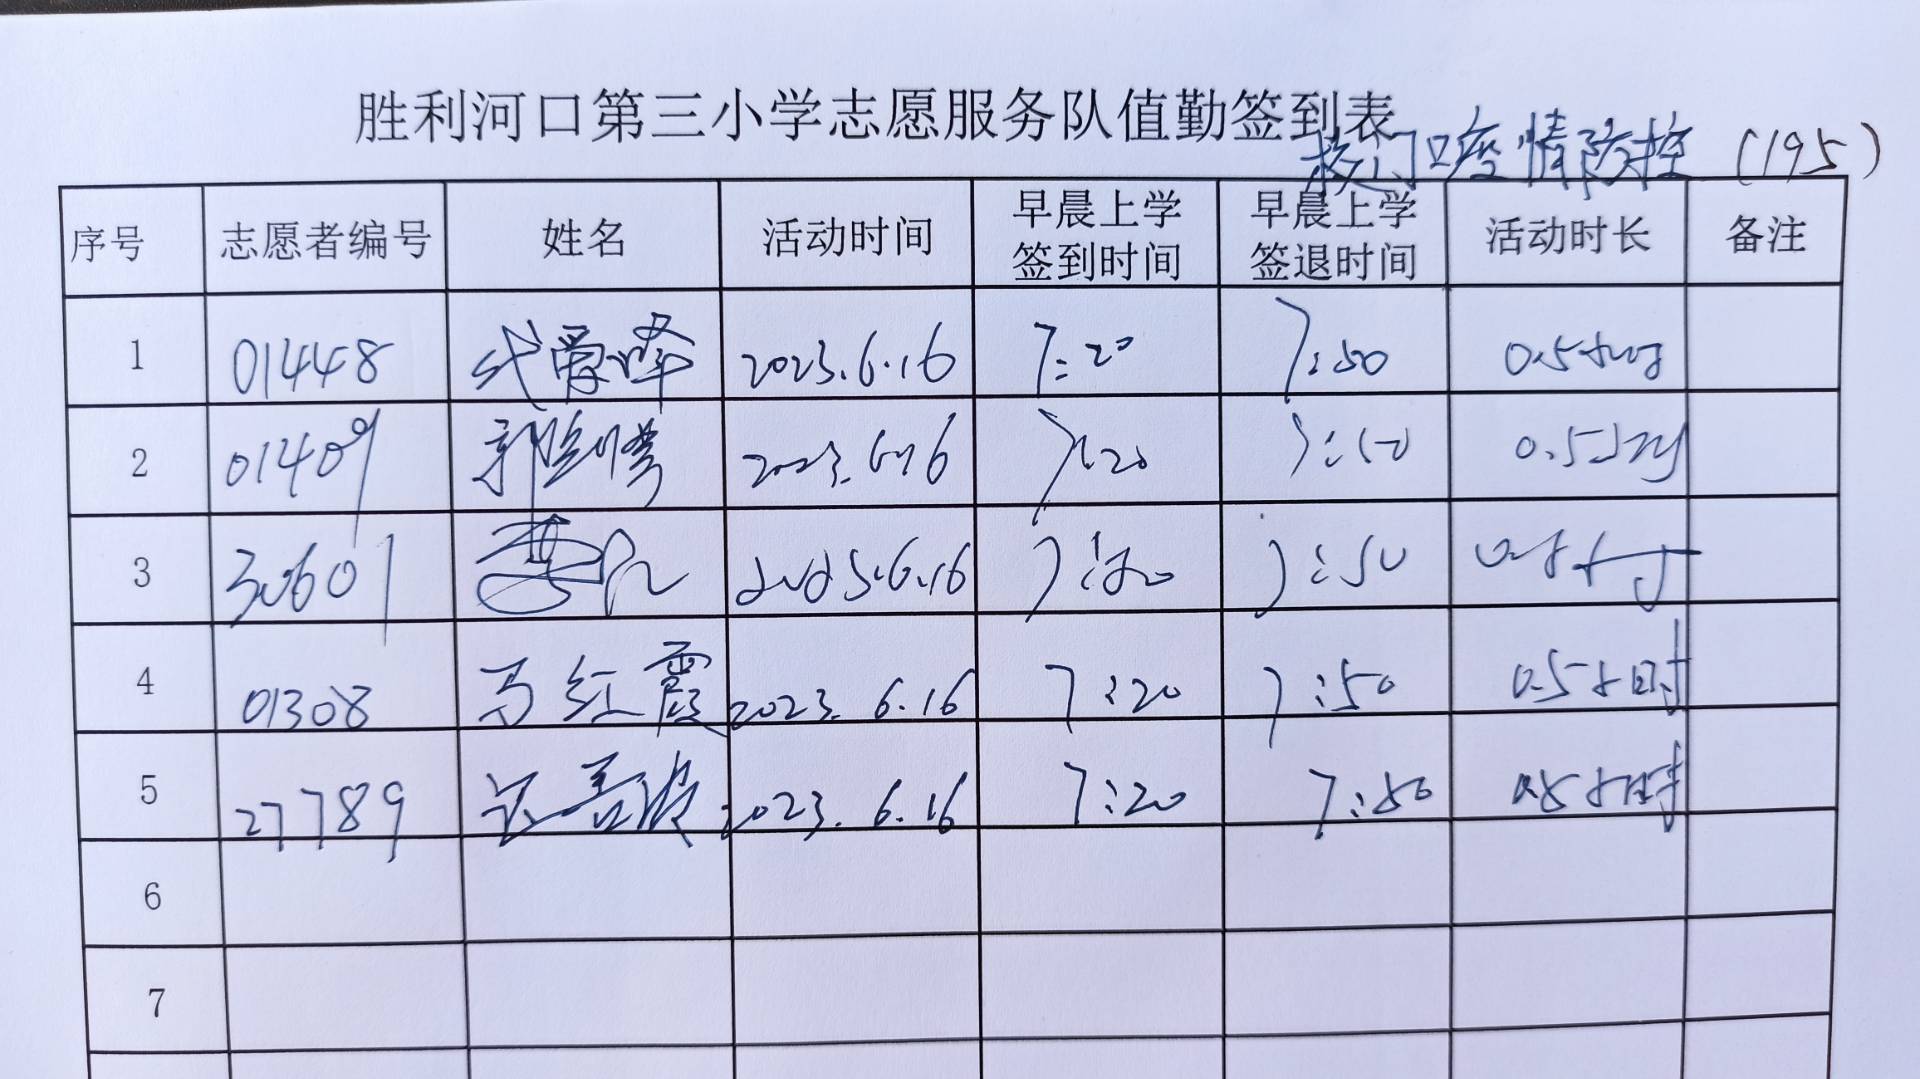 胜利河口第三小学志愿服务队值勤签到表
校门口疫情防控 (195)
序号 志愿者编号 姓名 活动时间 早晨上学签到时间 早晨上学签退时间 活动时长 备注
1 01448 2023.6.16 7:20 7:50 0.5小时
2 01409 2023.6.16 7:20 7:50 0.5小时
3 30601 2023.6.16 7:20 7:50 0.5小时
4 01308 马红霞 2023.6.16 7:20 7:50 0.5小时
5 27789 2023.6.16 7:20 7:50 0.5小时
6
7